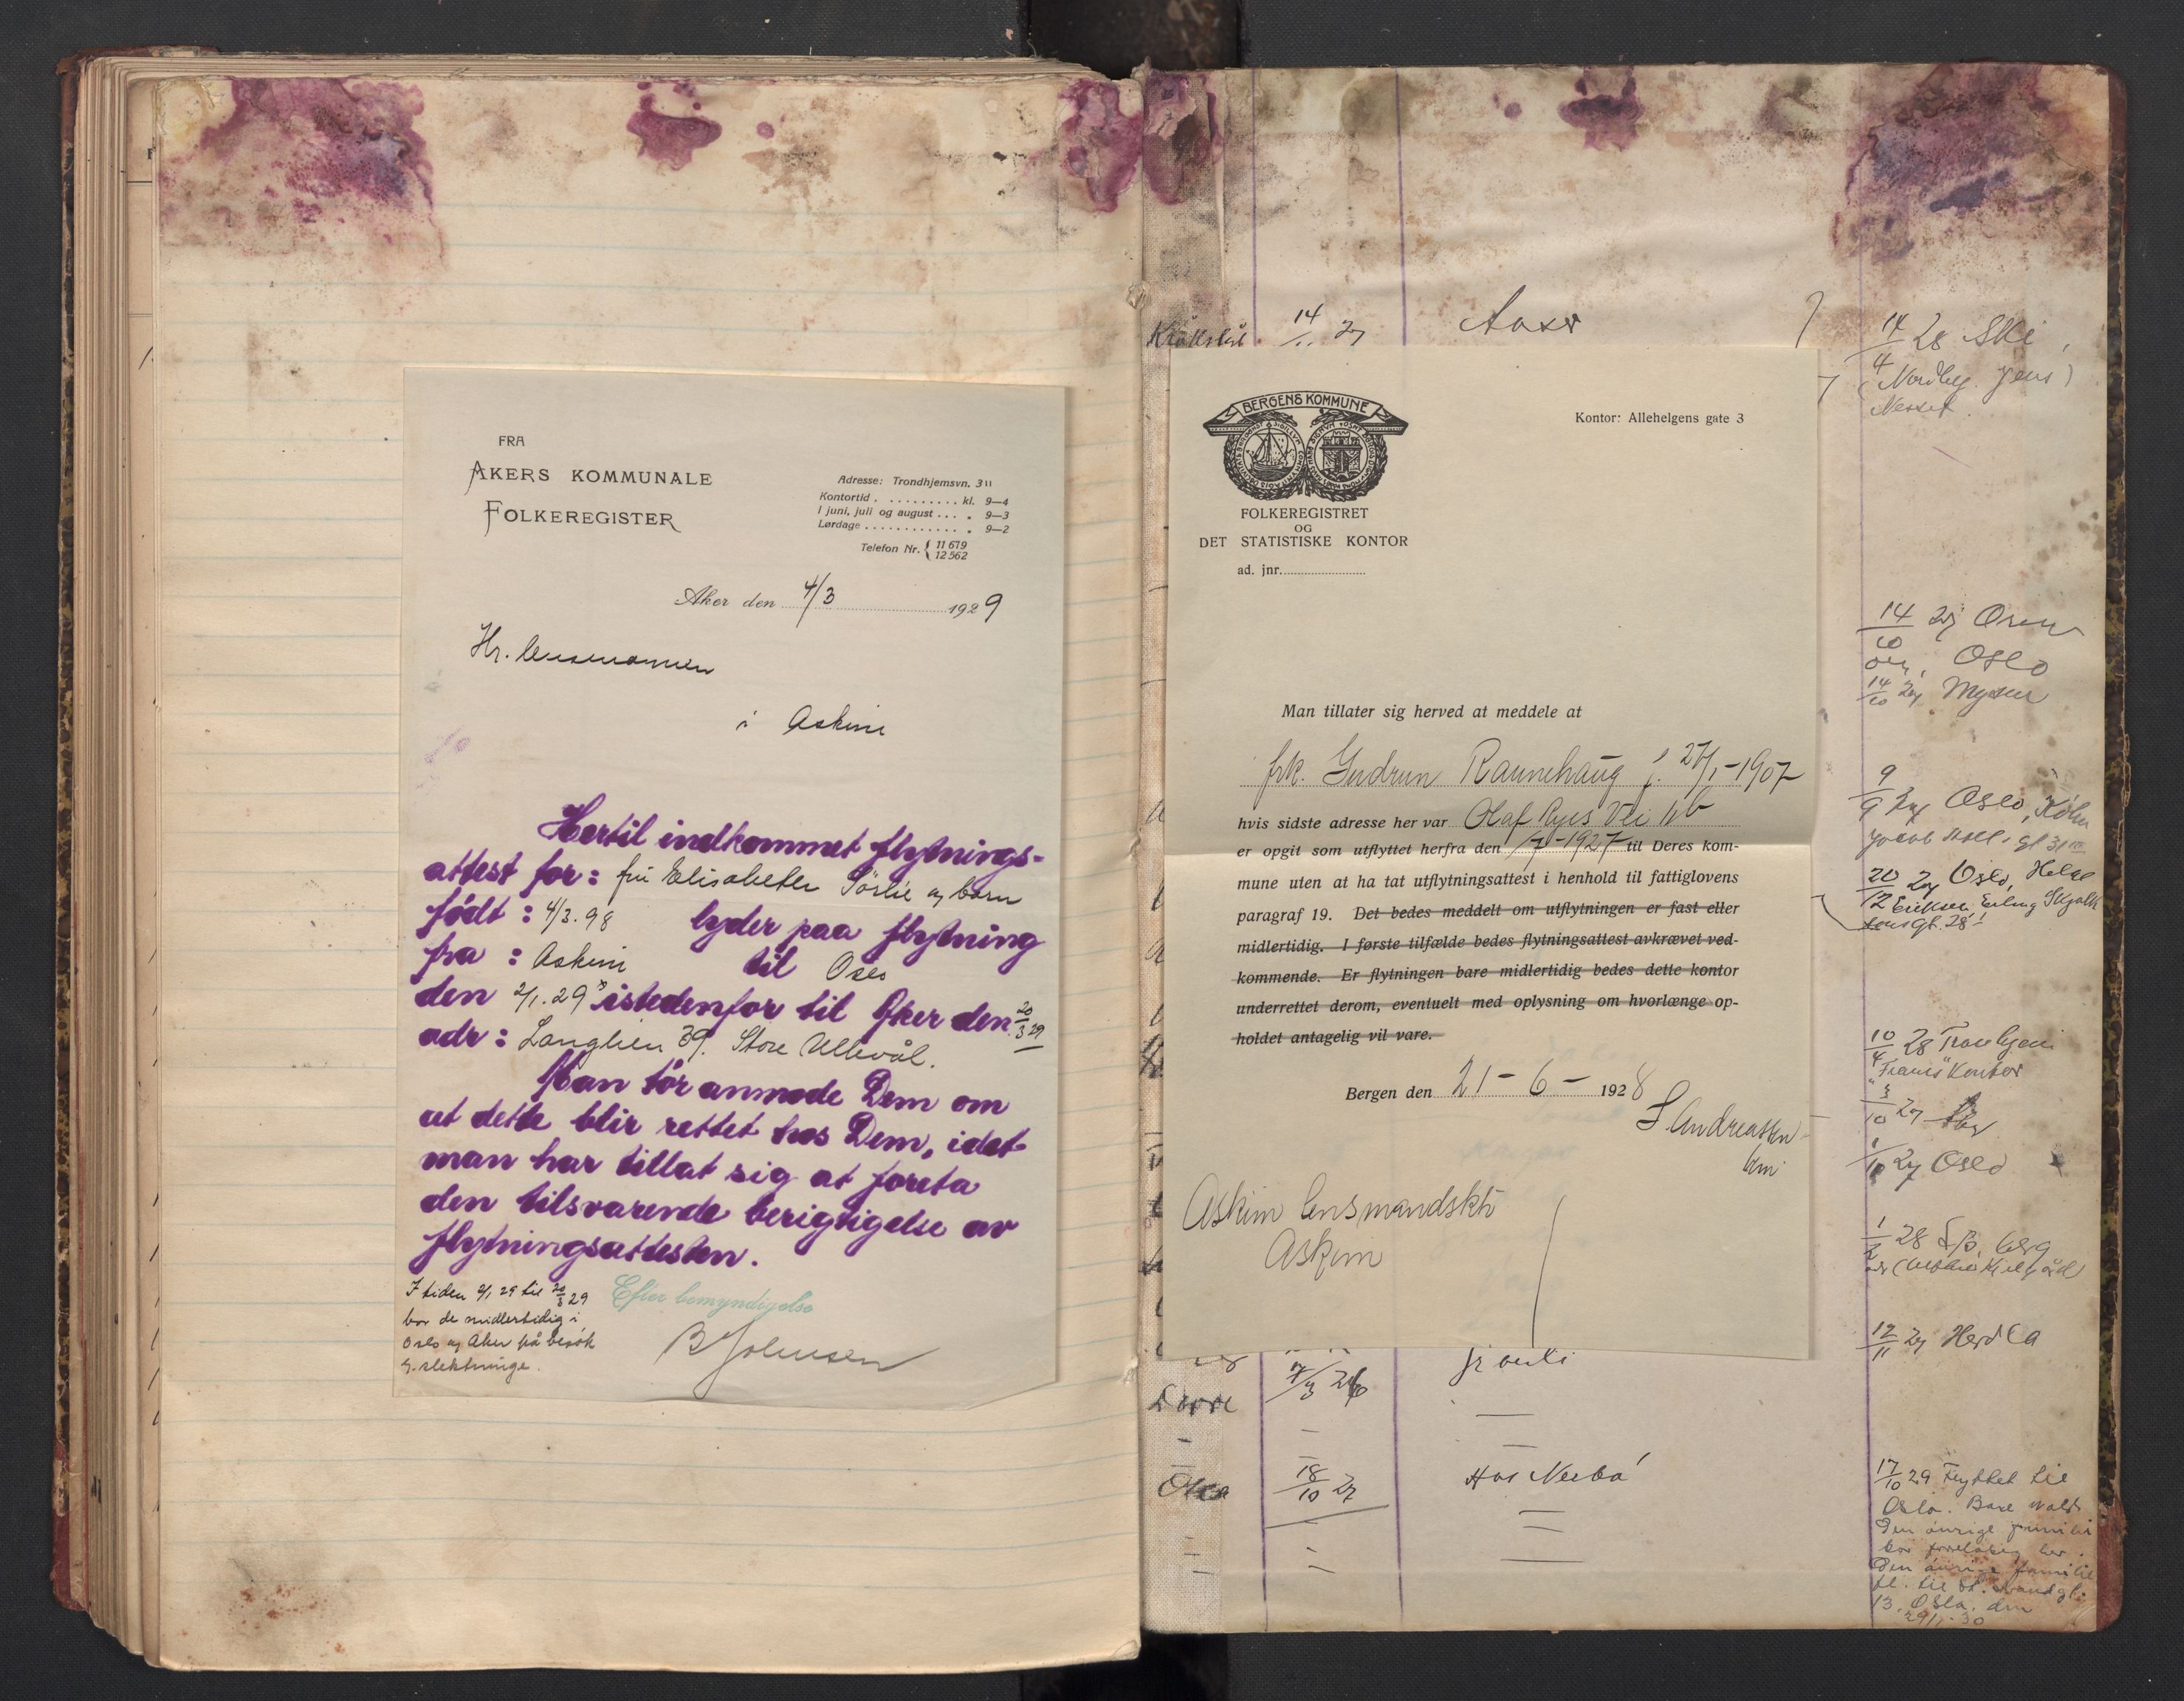 FRA
AKERS KOMMUNALE
FOLKEREGISTER
Adresse: Trondhjemsvn. 311
Kontortid . . . . . . . . . . kl. 9—4
I juni, juli og august . . . „ 9—3
Lørdage . . . . . . . . . . . . „ 9—2
Telefon Nr. { 11 679
12 562
Aker den 4/3 1929
Hr. lensmannen
i Askim
Hertil indkommet flytnings-
attest for: fru Elisabeth Sørlie og barn
født: 4/3.98 lyder paa flytning
fra: Askim til Oslo
den 2/1.29 istedenfor til Aker den 20/3 29
adr: Langlien 39. Store Ullevål.
Man tør anmode Dem om
at dette blir rettet hos Dem, idet
man har tillat sig at foreta
den tilsvarende berigtigelse av
flytningsattesten.
I tiden 2/1 29 til 20/3 29
bor de midlertidig i
Oslo og Aker på besøk
h. slektninge.
Efter bemyndigelse
B Johnsen
Kråkstad 14 27
14/4 28 Ski,
BERGENS KOMMUNE
Kontor: Allehelgens gate 3
FOLKEREGISTRET
OG
DET STATISTISKE KONTOR
ad. jnr.
Man tillater sig herved at meddele at
frk. Gudrun Raunehaug f. 27/1-1907
hvis sidste adresse her var Olaf Ryes Vei 11b
er opgit som utflyttet herfra den /7-1927 til Deres kom-
mune uten at ha tat utflytningsattest i henhold til fattiglovens
paragraf 19. Det bedes meddelt om utflytningen er fast eller
midlertidig. I første tilfælde bedes flytningsattest avkrævet ved-
kommende. Er flytningen bare midlertidig bedes dette kontor
underrettet derom, eventuelt med oplysning om hvorlænge op-
holdet antagelig vil vare.
Bergen den 21-6-1928
S. Andreassen
Askim lensmandskt
Askim
14/10 27
Oslo
14/10 27 Mysen
9/9 27 Oslo,
20/12 27 Oslo, Helge
Eriksen, Erling Skjalg
sons gt. 28
10/4 28 Trondhjem
"Frams" Kontor
3/10 27
1/10 27 Oslo
1/2 28
12/11 27 Herdla
17/3 26
18/10 27
17/10 29 Flyttet til
Oslo. Bare
Den øvrige familie
bor foreløbig her.
Den øvrige familie
fl. til
13. Oslo. den
29/1-30